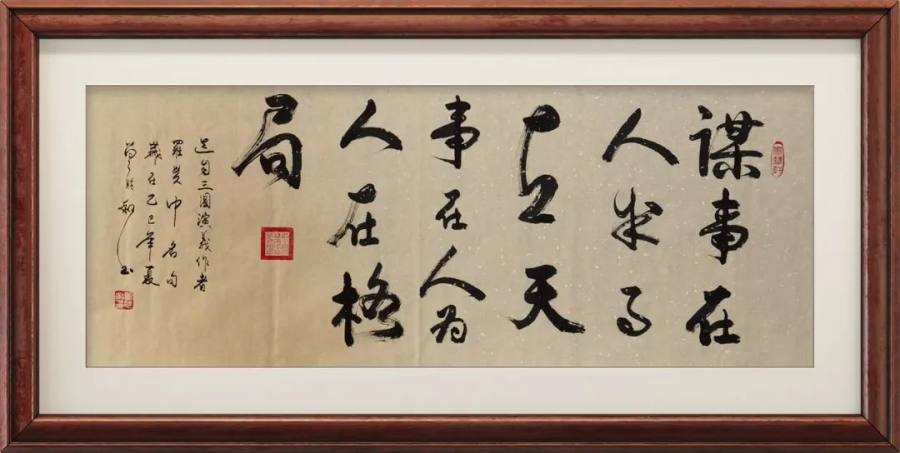 謀事在
人成事
在天
事在人为
人在格
局
选自三國演義作者
羅貫中名句
歲在乙巳年夏